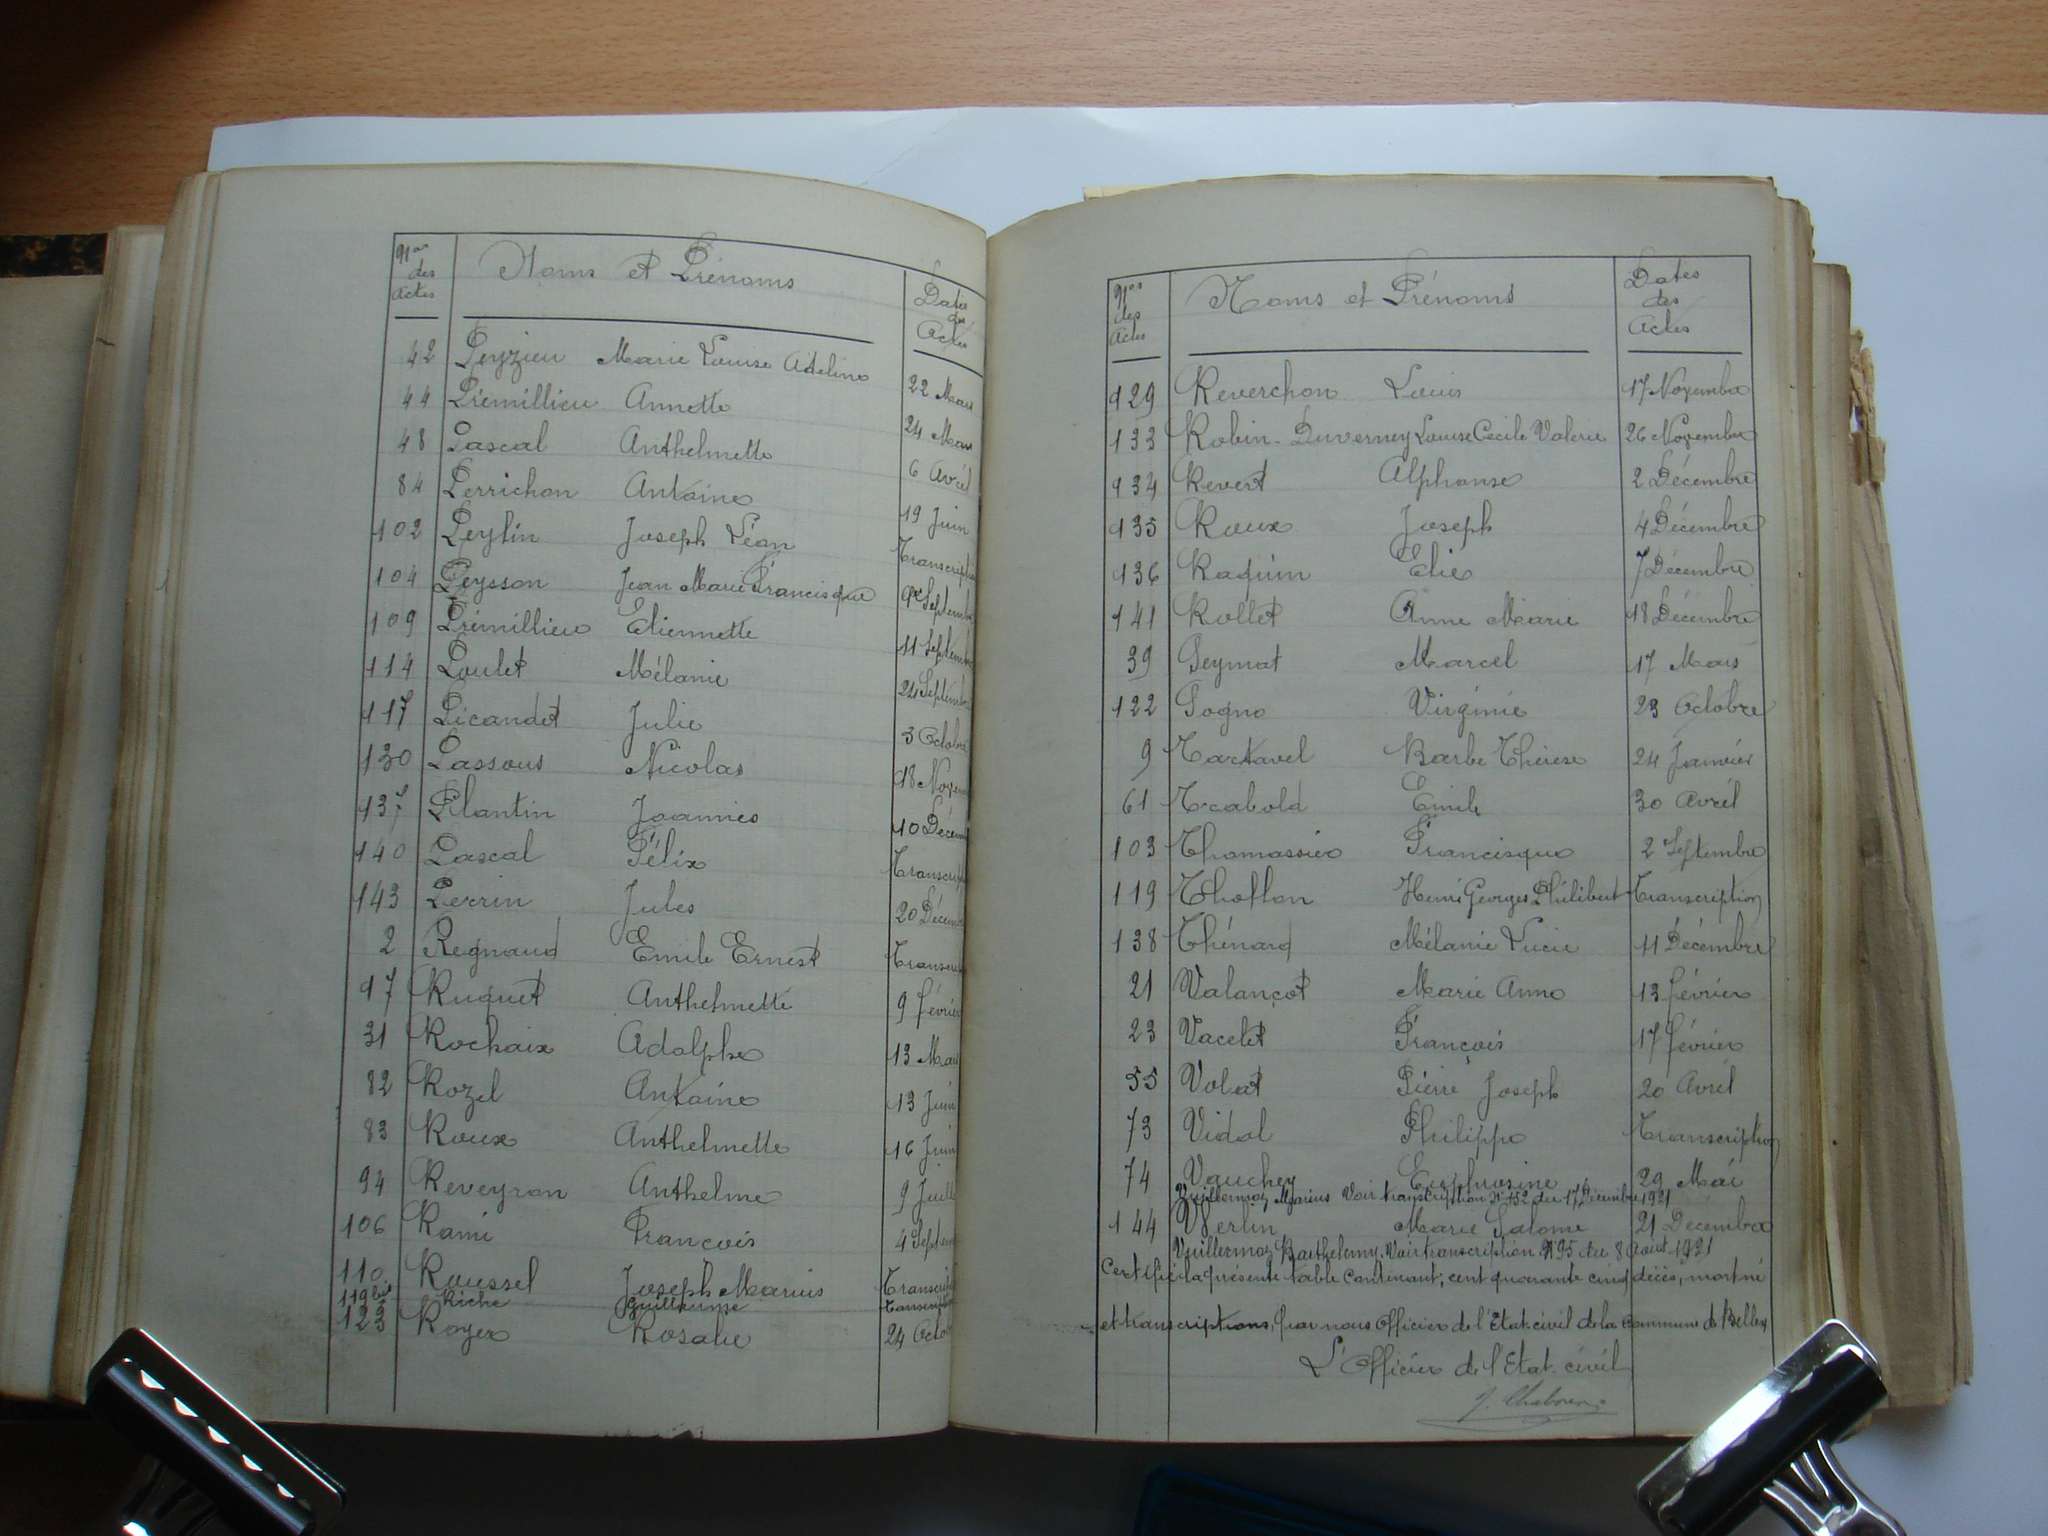 Nos des Actes
Noms et Prénoms
Dates des Actes
42 Peyzieu Marie Louise Adeline 22 Mars
44 Prémillieu Annette 24 Mars
48 Pascal Anthelmette 6 Avril
84 Perrichon Antoine 19 Juin
102 Peylin Joseph Léon Transcription
104 Peysson Jean Marie Francisque Septembre
109 Prémillieu Etiennette 11 Septembre
114 Poulet Mélanie 24 Septembre
117 Picandet Julie 3 Octobre
130 Passous Nicolas 18 Novem
137 Plantin Joannies 10 Décem
140 Pascal Félix Transcrip
143 Perrin Jules 20 Décem
2 Regnaud Emile Ernest Transcrip
17 Ruquet Anthelmette 9 février
31 Rochaix Adolphe 13 Mars
82 Rozel Antoine 13 Juin
83 Roux Anthelmette 16 Juin
94 Reveyron Anthelme 9 Juill
106 Rami François 4 Septem
110 Roussel Joseph Marius Transcrip
119 bis Riche Guillaume Transcription
123 Royer Rosalie 24 Octo
Nos des Actes
Noms et Prénoms
Dates des Actes
129 Reverchon Louis 17 Novembre
133 Robin-Duverney Louise Cécile Valérie 26 Novembre
134 Revert Alphonse 2 Décembre
135 Roux Joseph 4 Décembre
136 Raquin Elie 7 Décembre
141 Rollet Anne Marie 18 Décembre
39 Seymat Marcel 17 Mars
122 Sogno Virginie 23 Octobre
9 Tartavel Barbe Thérèse 24 Janvier
61 Trabold Emile 30 Avril
103 Thomassier Francisque 2 Septembre
119 Thoflon Henri Georges Philibert Transcription
138 Thénard Mélanie Lucie 11 Décembre
21 Valançot Marie Anne 13 février
23 Vacelet François 17 février
55 Volat Pierre Joseph 20 Avril
73 Vidal Philippe Transcription
74 Vauchey Euphrosine 29 Mai
Vuillermoz Marius Voir transcription N° 152 du 17 Décembre 1921
144 Werlin Marie Salomé 21 Décembre
Vuillermoz Barthelemy. Voir transcription N° 95 du 8 Août 1921
Certifié la présente table contenant, cent quarante cinq décès, mort né
et transcriptions, par nous Officier de l'Etat civil de la Commune de Belley
L'Officier de l'Etat civil